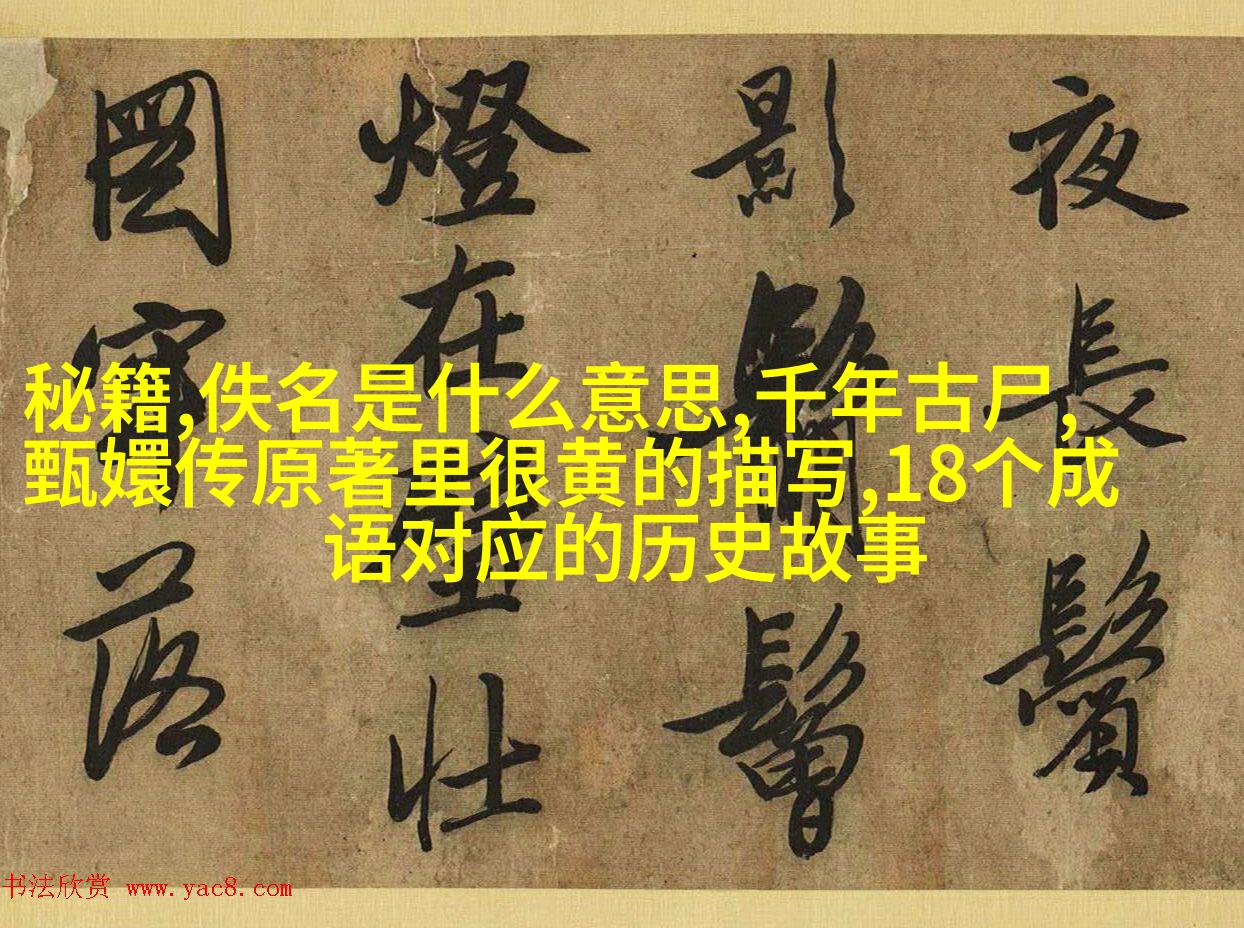 夜長鬢
影鬅鬙
燈在壁壮
圖牢落
秘籍,佚名是什么意思,千年古尸,
甄嬛传原著里很黄的描写,18个成
语对应的历史故事
书法欣赏 www.yac8.com